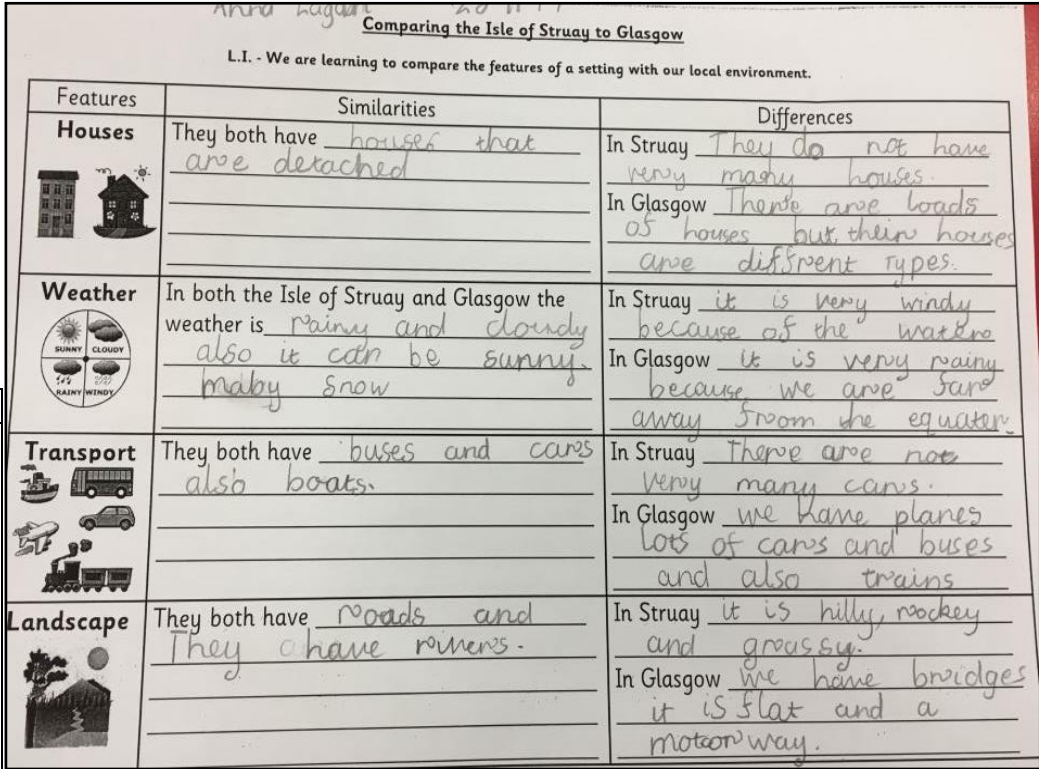 Anna
Comparing the Isle of Struay to Glasgow
L.I. - We are learning to compare the features of a setting with our local environment.
Features
Similarities
Differences
Houses
They both have houses that
are detached
In Struay They do not have
very many houses.
In Glasgow There are loads
of houses but their houses
are diffrent types.
Weather
SUNNY CLOUDY
RAINY WINDY
In both the Isle of Struay and Glasgow the
weather is rainy and cloudy
also it can be sunny.
maby snow
In Struay it is very windy
because of the water
In Glasgow it is very rainy
because we are far
away from the equater.
Transport
They both have buses and cars
also boats.
In Struay There are not
very many cars.
In Glasgow we have planes
lots of cars and buses
and also trains
Landscape
They both have roads and
They have rivers.
In Struay it is hilly, rockey
and grassy.
In Glasgow we have bridges
it is flat and a
motorway.